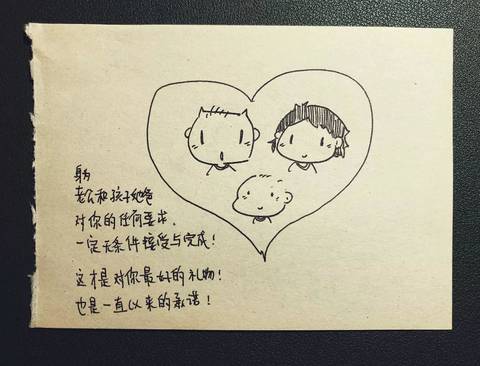 身为
老公和孩子他爸
对你的任何要求，
一定无条件接受与完成！
这才是对你最好的礼物！
也是一直以来的承诺！